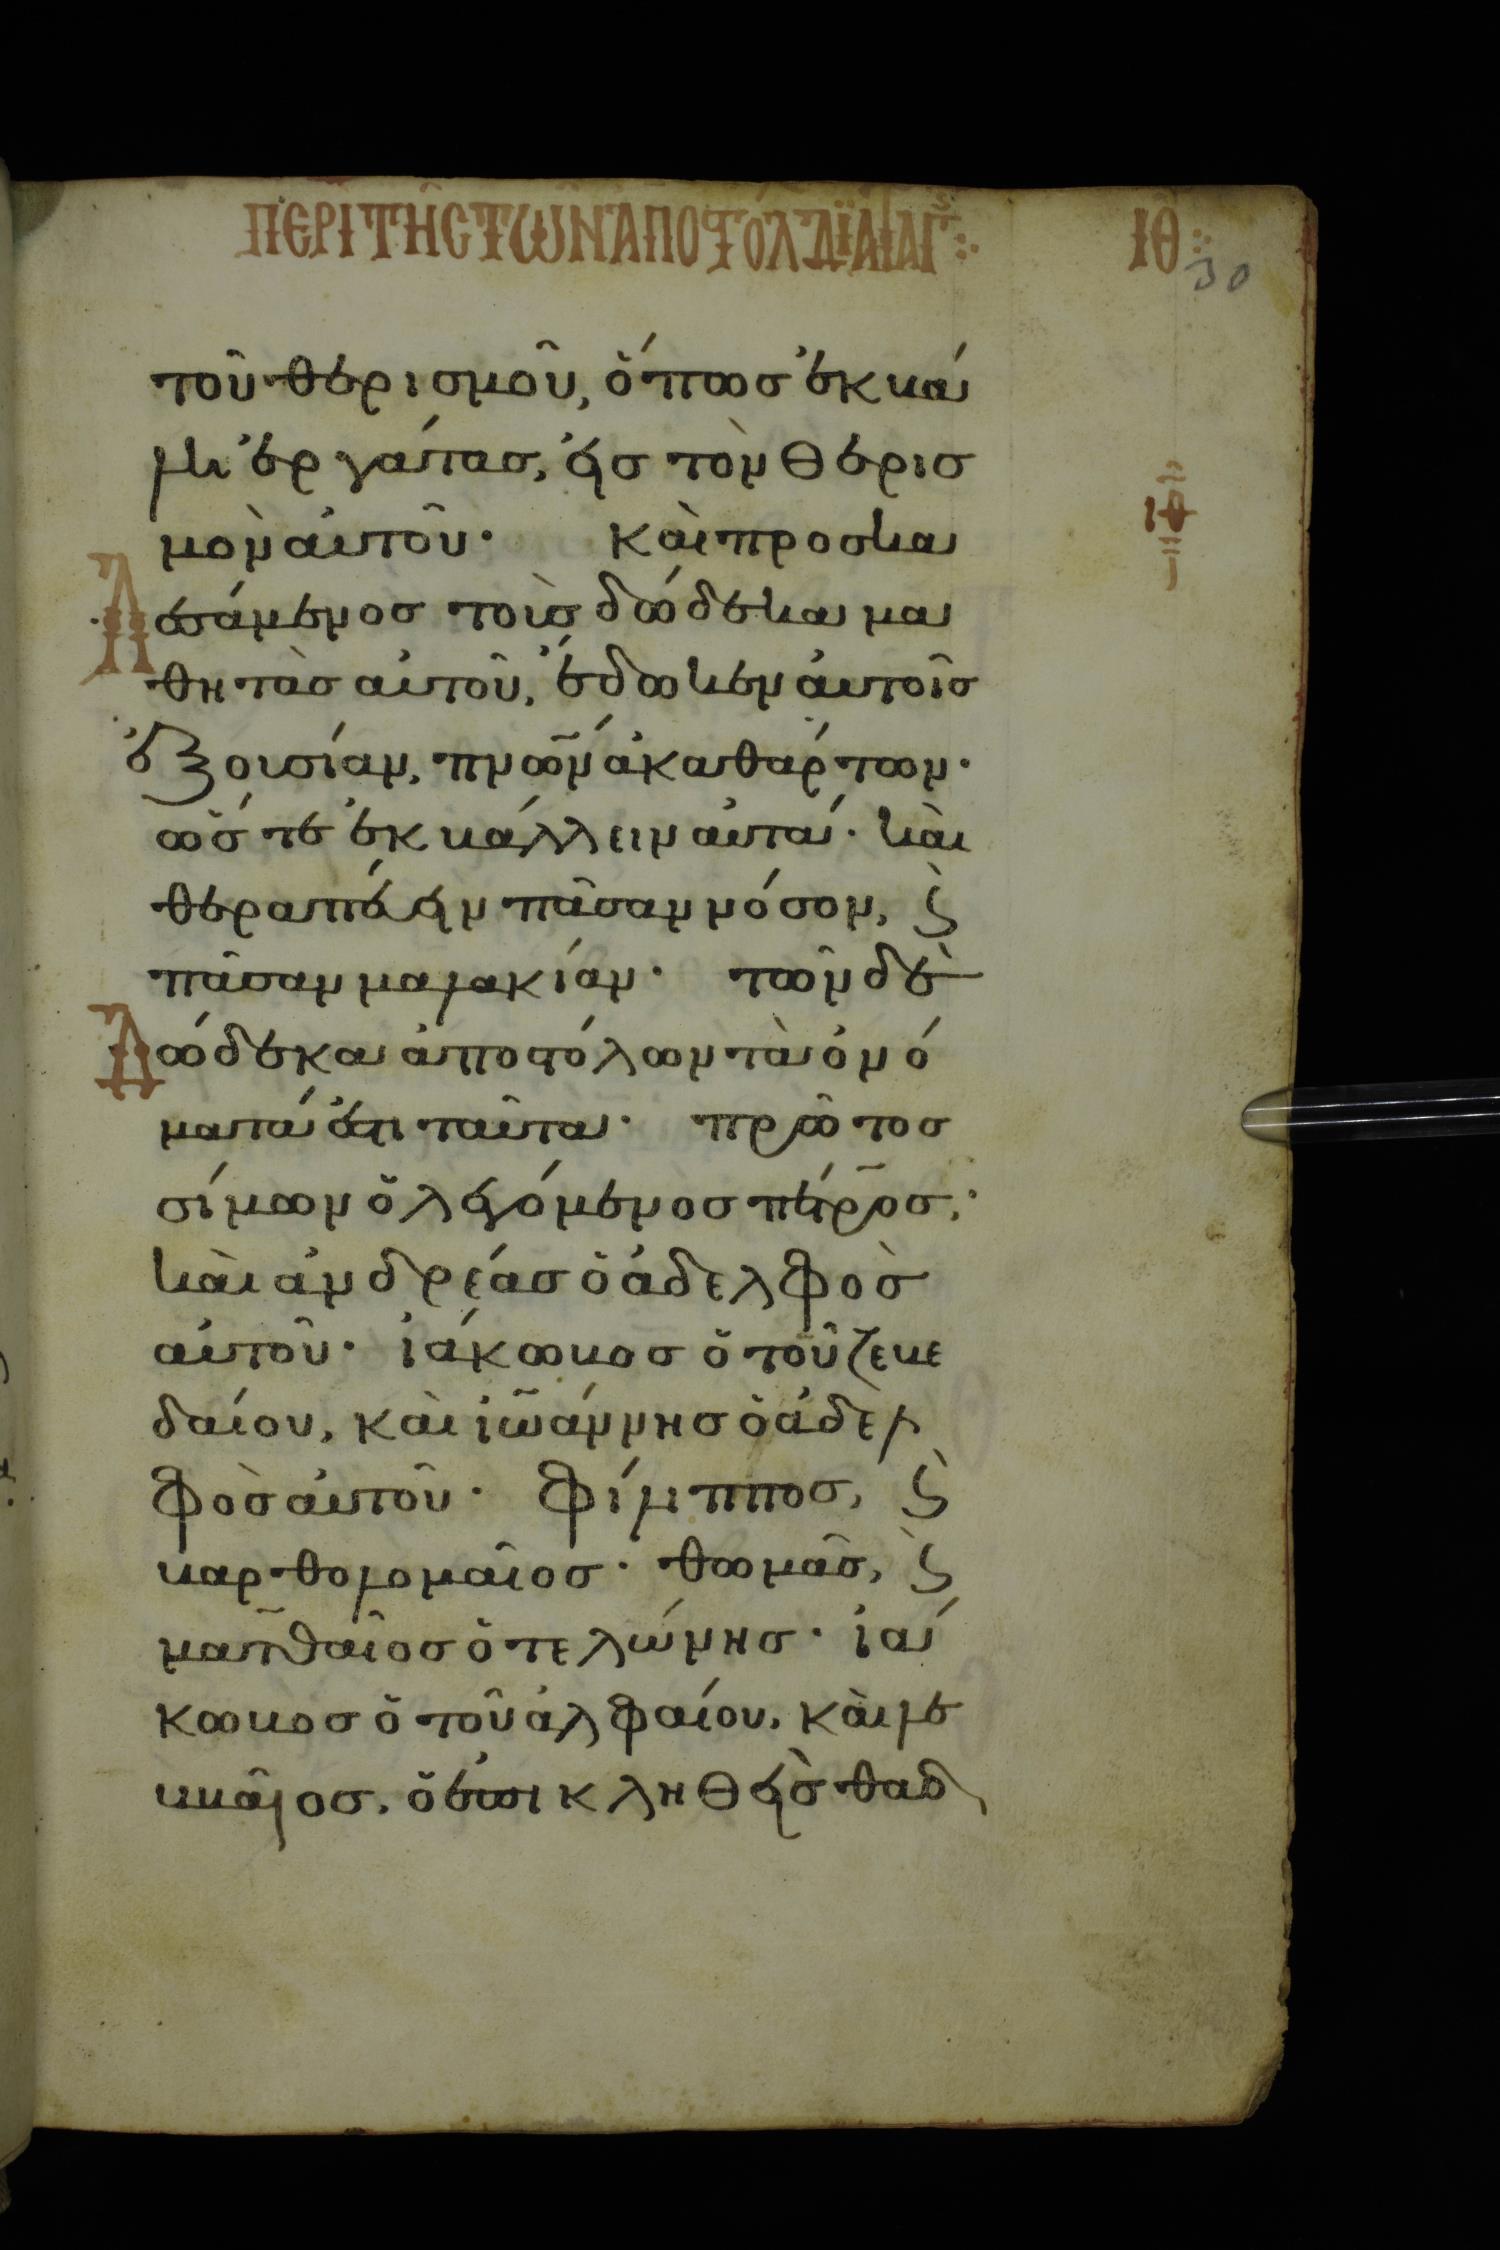 ΠΕΡΙ ΤΗΣ ΤΩΝ ΑΠΟΣΤΟΛ ΔΙΑΤΑΓ ΙΘ
30
τοῦ θερισμοῦ, ὅπωσ ἐκβά
λη ἐργάτασ, εἰσ τὸν θερισ
μὸν αὐτοῦ· και προσκα
λεσάμενοσ τοὺσ δώδεκα μα
θητὰσ αὐτοῦ, ἔδωκεν αὐτοῖσ
ἐξουσίαν, πνων ἀκαθάρτων·
ὥστε ἐκβάλλειν αὐτά· καὶ
θεραπεύειν πᾶσαν νόσον, ϛ
πᾶσαν μαλακίαν· τῶν δὲ
δώδεκα ἀποστόλων τὰ ὀνό
ματά ἐστι ταῦτα· πρῶτοσ
σίμων ὁ λεγόμενοσ πέτροσ,
καὶ ἀνδρέασ ὁ ἀδελφὸσ
αὐτοῦ· ἰάκωβοσ ὁ τοῦ ζεβε
δαίου, καὶ ἰωάννησ ὁ ἀδελ
φὸσ αὐτοῦ· φίλιπποσ, ϛ
βαρθολομαῖοσ· θωμᾶσ, ϛ
ματθαῖοσ ὁ τελώνησ· ἰά
κωβοσ ὁ τοῦ ἀλφαίου, καὶ λε
ββαῖοσ, ὁ ἐπικληθεὶσ θαδ